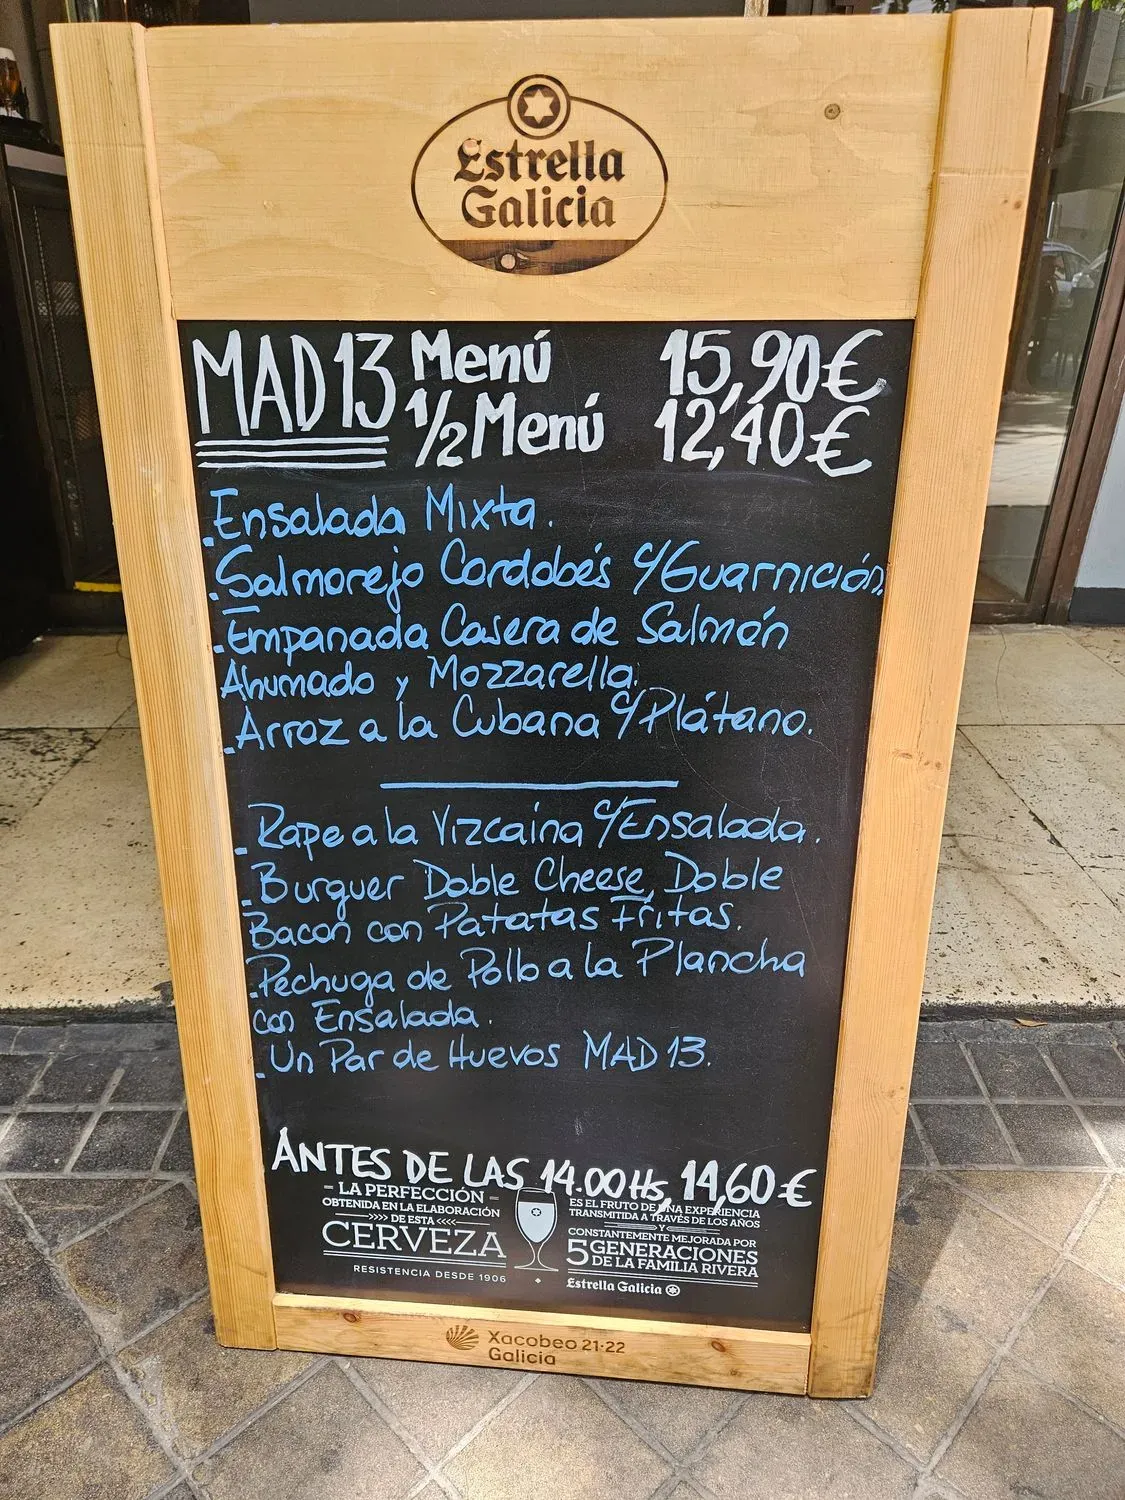 Estrella
Galicia
MAD 13 Menú 15,90€
1/2 Menú 12,40€
.Ensalada Mixta.
.Salmorejo Cordobés c/Guarnición.
.Empanada Casera de Salmón
Ahumado y Mozzarella.
.Arroz a la Cubana c/Plátano.
.Rape a la Vizcaína c/Ensalada.
.Burguer Doble Cheese, Doble
Bacon con Patatas Fritas.
.Pechuga de Pollo a la Plancha
con Ensalada.
.Un Par de Huevos MAD 13.
ANTES DE LAS 14.00Hs, 14,60€
- LA PERFECCIÓN -
OBTENIDA EN LA ELABORACIÓN
>>>> DE ESTA <<<<
CERVEZA
RESISTENCIA DESDE 1906
ES EL FRUTO DE UNA EXPERIENCIA
TRANSMITIDA A TRAVÉS DE LOS AÑOS
Y
CONSTANTEMENTE MEJORADA POR
5 GENERACIONES
DE LA FAMILIA RIVERA
Estrella Galicia
Xacobeo 21·22
Galicia